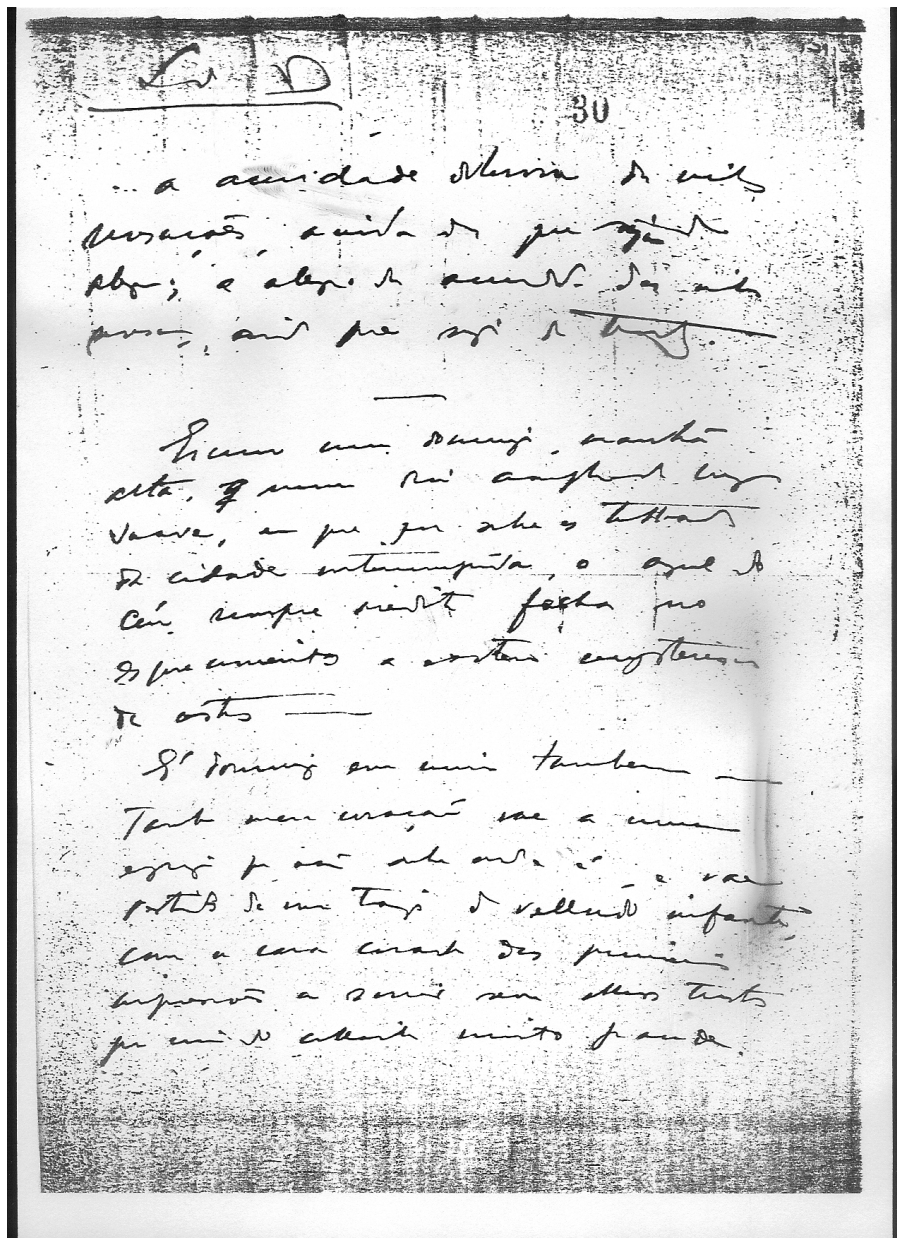 L. do D.
30
... a acuidade dolorosa das minhas
sensações, ainda das que sejam de
alegria; a alegria da acuidade das minhas
sensações, ainda que sejam de tristeza.
Escrevo num domingo, manhã
alta, num dia amplo de luz
suave, em que, por sobre os telhados
da cidade interrompida, o azul do
céu sempre inédito fecha no
esquecimento a existência mysteriosa
de astros —
É domingo em mim também —
Também meu coração vae a uma
egreja que não sabe onde é, e vae
vestido de um traje de velludo infante,
com a cara corada das primeiras
impressões a sorrir sem olhos tristes
por cima do collarinho muito grande.